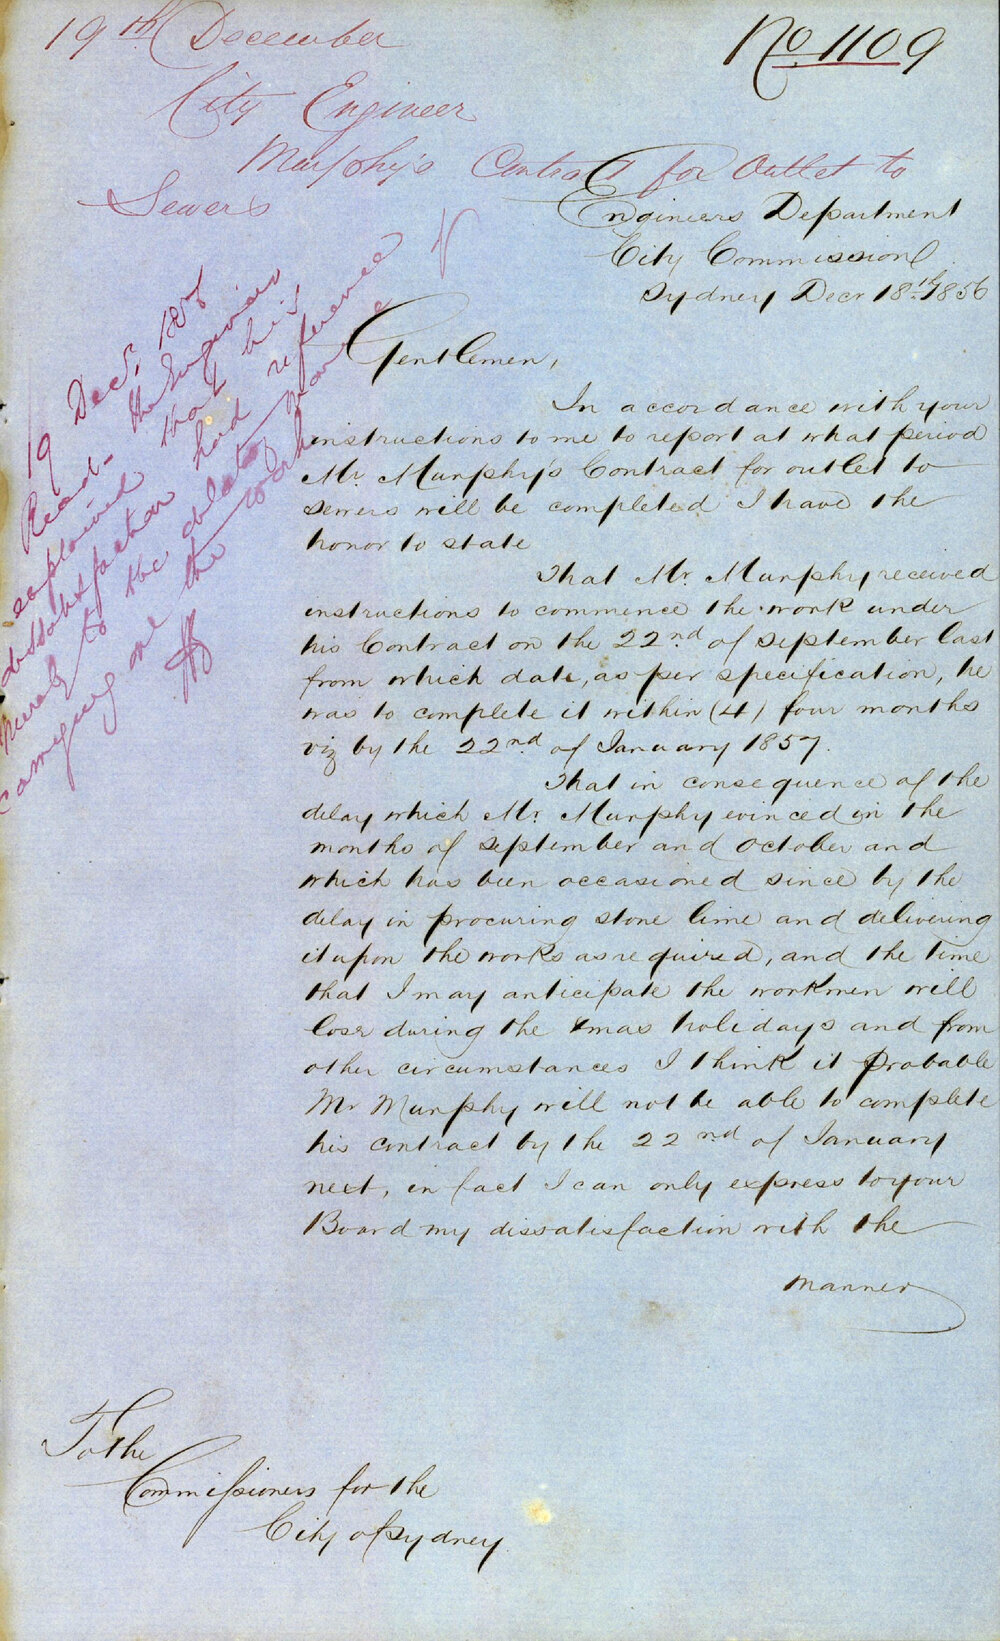 19th December
No. 1109
City Engineer
Murphy's Contract for Outlet to
Sewers
Engineers Department
City Commission
Sydney Decr 18th 1856
19 Decr, 185
Read-
the Engineer
explained that his
dissatisfaction had reference
merely to the dilatory manner
carrying on the work
Gentlemen,
In accordance with your
instructions to me to report at what period
Mr. Murphy's Contract for outlet to
sewers will be completed I have the
honor to state
That Mr. Murphy received
instructions to commence the work under
his Contract on the 22nd. of September last
from which date, as per specification, he
was to complete it within (4) four months
viz by the 22nd. of January 1857.
That in consequence of the
delay which Mr. Murphy evinced in the
months of September and October and
which has been occasioned since by the
delay in procuring stone lime and delivering
it upon the works as required, and the time
that I may anticipate the workmen will
lose during the Xmas holidays and from
other circumstances I think it probable
Mr Murphy will not be able to complete
his contract by the 22nd of January
next, in fact I can only express to your
Board my dissatisfaction with the
manner
To the
Commissioners for the
City of Sydney.